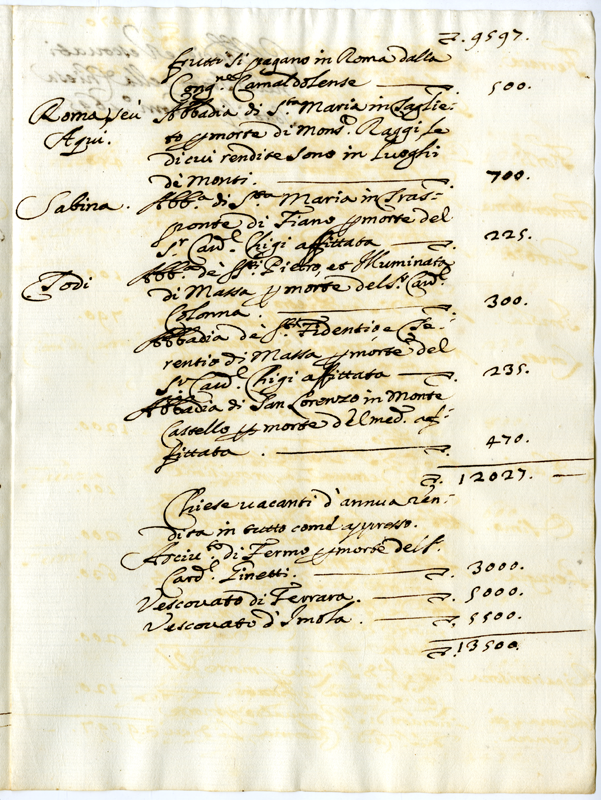 ∇. 9597.
frutti si pagano in Roma dalla
Cong.ne Camaldolense — ∇. 500.
Roma, seu Abbadia di S.ta Maria in Taglie-
Aqui. to p morte di Mons.r Raggi, le
di cui rendite sono in Luoghi
de Monti. — ∇. 700.
Sabina. Abb.a di S.ta Maria in Tras-
ponte di Fiano p morte del
S.r Card.l Chigi affittata — ∇. 225.
Todi Abb.a de SS.ti Pietro, et Illuminata
di Massa p morte del S.r Card.l
Colonna. — ∇. 300.
Abbadia de SS.ti Fidentio e Te-
rentio di Massa p morte del
S.r Card.l Chigi affittata — ∇. 235.
Abbadia di San Lorenzo in Monte
Castello p morte del med.o af-
fittata. — ∇. 470.
∇. 12027. —
Chiese vacanti d'annua ren-
dita in tutto come appresso.
Arciv.to di Fermo p morte del S.
Card.l Ginetti. — ∇. 3000.
Vescovato di Ferrara. — ∇. 5000.
Vescovato d'Imola. — ∇. 5500.
∇. 13500.